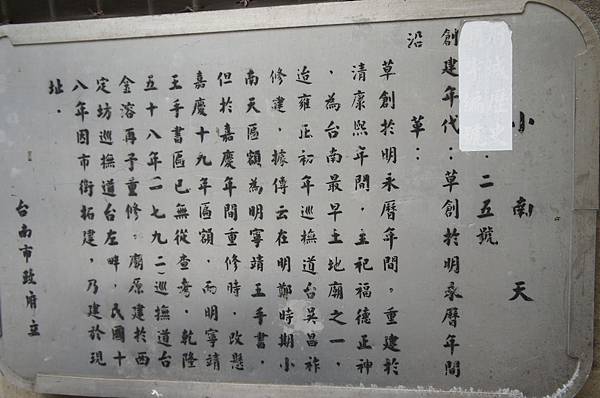 小南天
二五號
創建年代：草創於明永曆年間
沿革：
草創於明永曆年間。重建於
清康熙年間，主祀福德正神
，為台南最早土地廟之一，
迨雍正初年巡撫道台吳昌祚
修建，據傳云在明鄭時期小
南天區額為明寧靖王手書
但於嘉慶年間重修時，改懸
嘉慶十九年區額，而明寧靖
王手書區已無從查考，乾隆
五十八年(一七九二)巡撫道台
金溶再予重修。廟原建於西
定坊巡撫道台左畔，民國十
八年因市街拓建，乃建於現
址．
台南市政府立